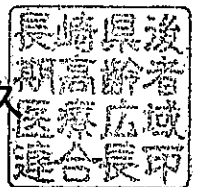 長崎県後
期高齢者
医療広域
連合長印
ス